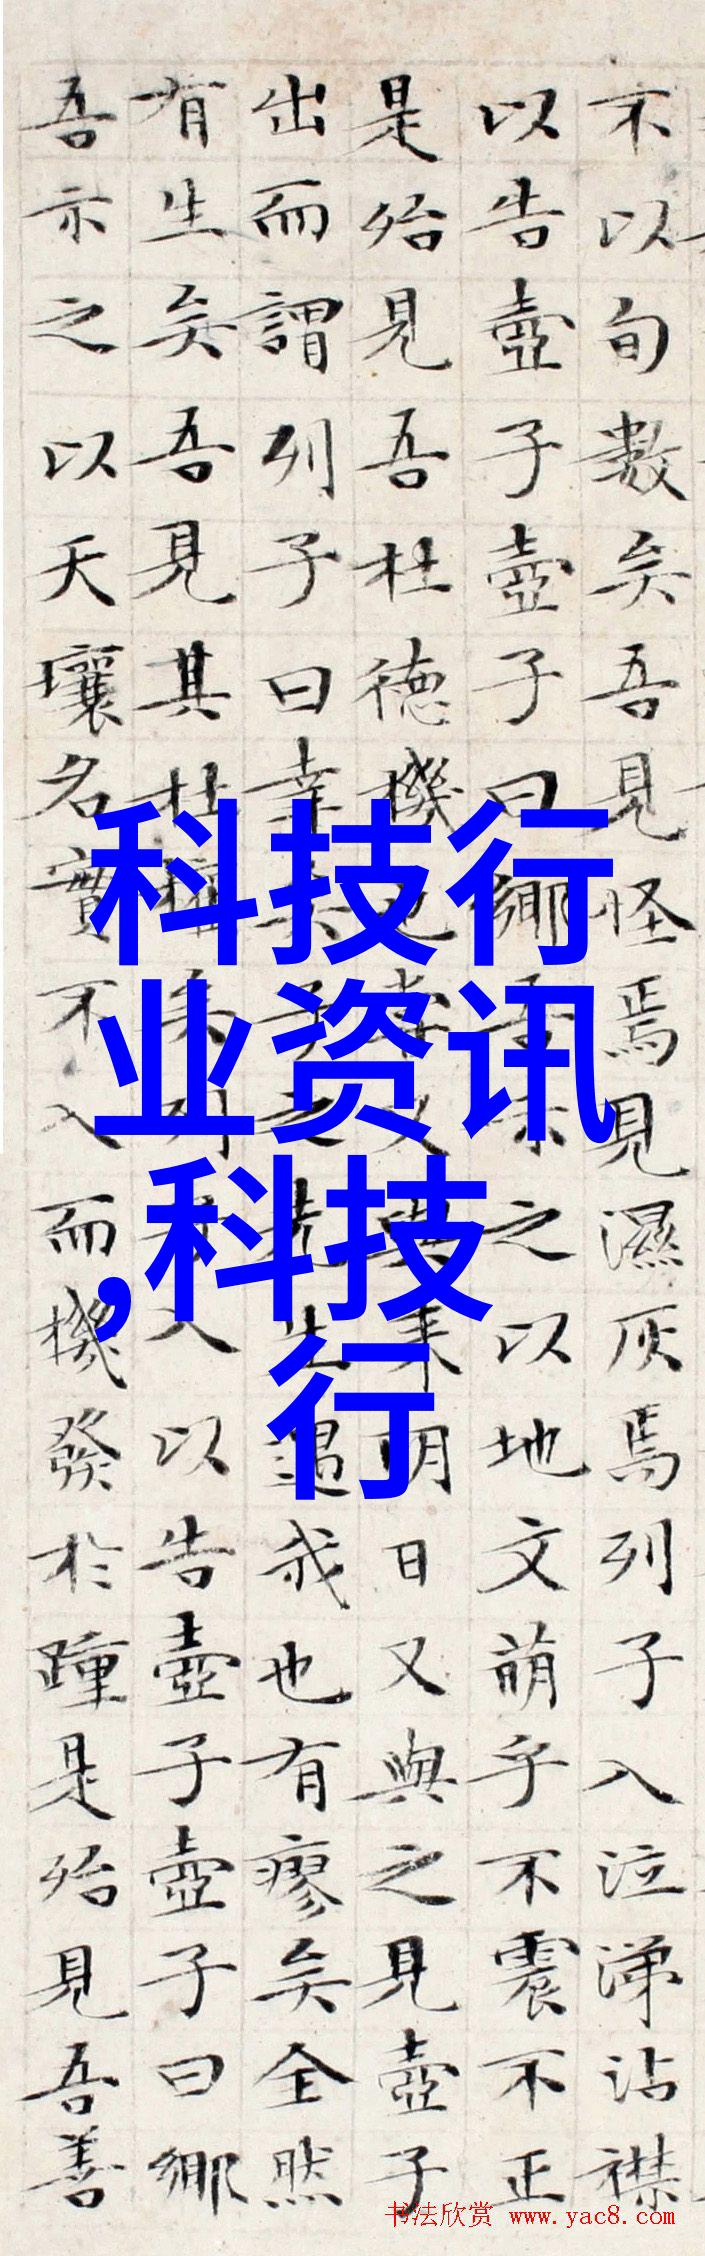 不以旬數矣吾見怪焉見濕灰焉列子入泣涕沾襟
以告壺子壺子曰鄉吾示之以地文萌乎不震不正
是殆見吾杜德機也嘗又與來明日又與之見壺子
出而謂列子曰幸矣子之先生遇我也有瘳矣全然
有生矣吾見其杜權矣列子入以告壺子壺子曰鄉
吾示之以天壤名實不入而機發於踵是殆見吾善
科技行
业资讯
,科技
行
书法欣赏 www.yac8.com